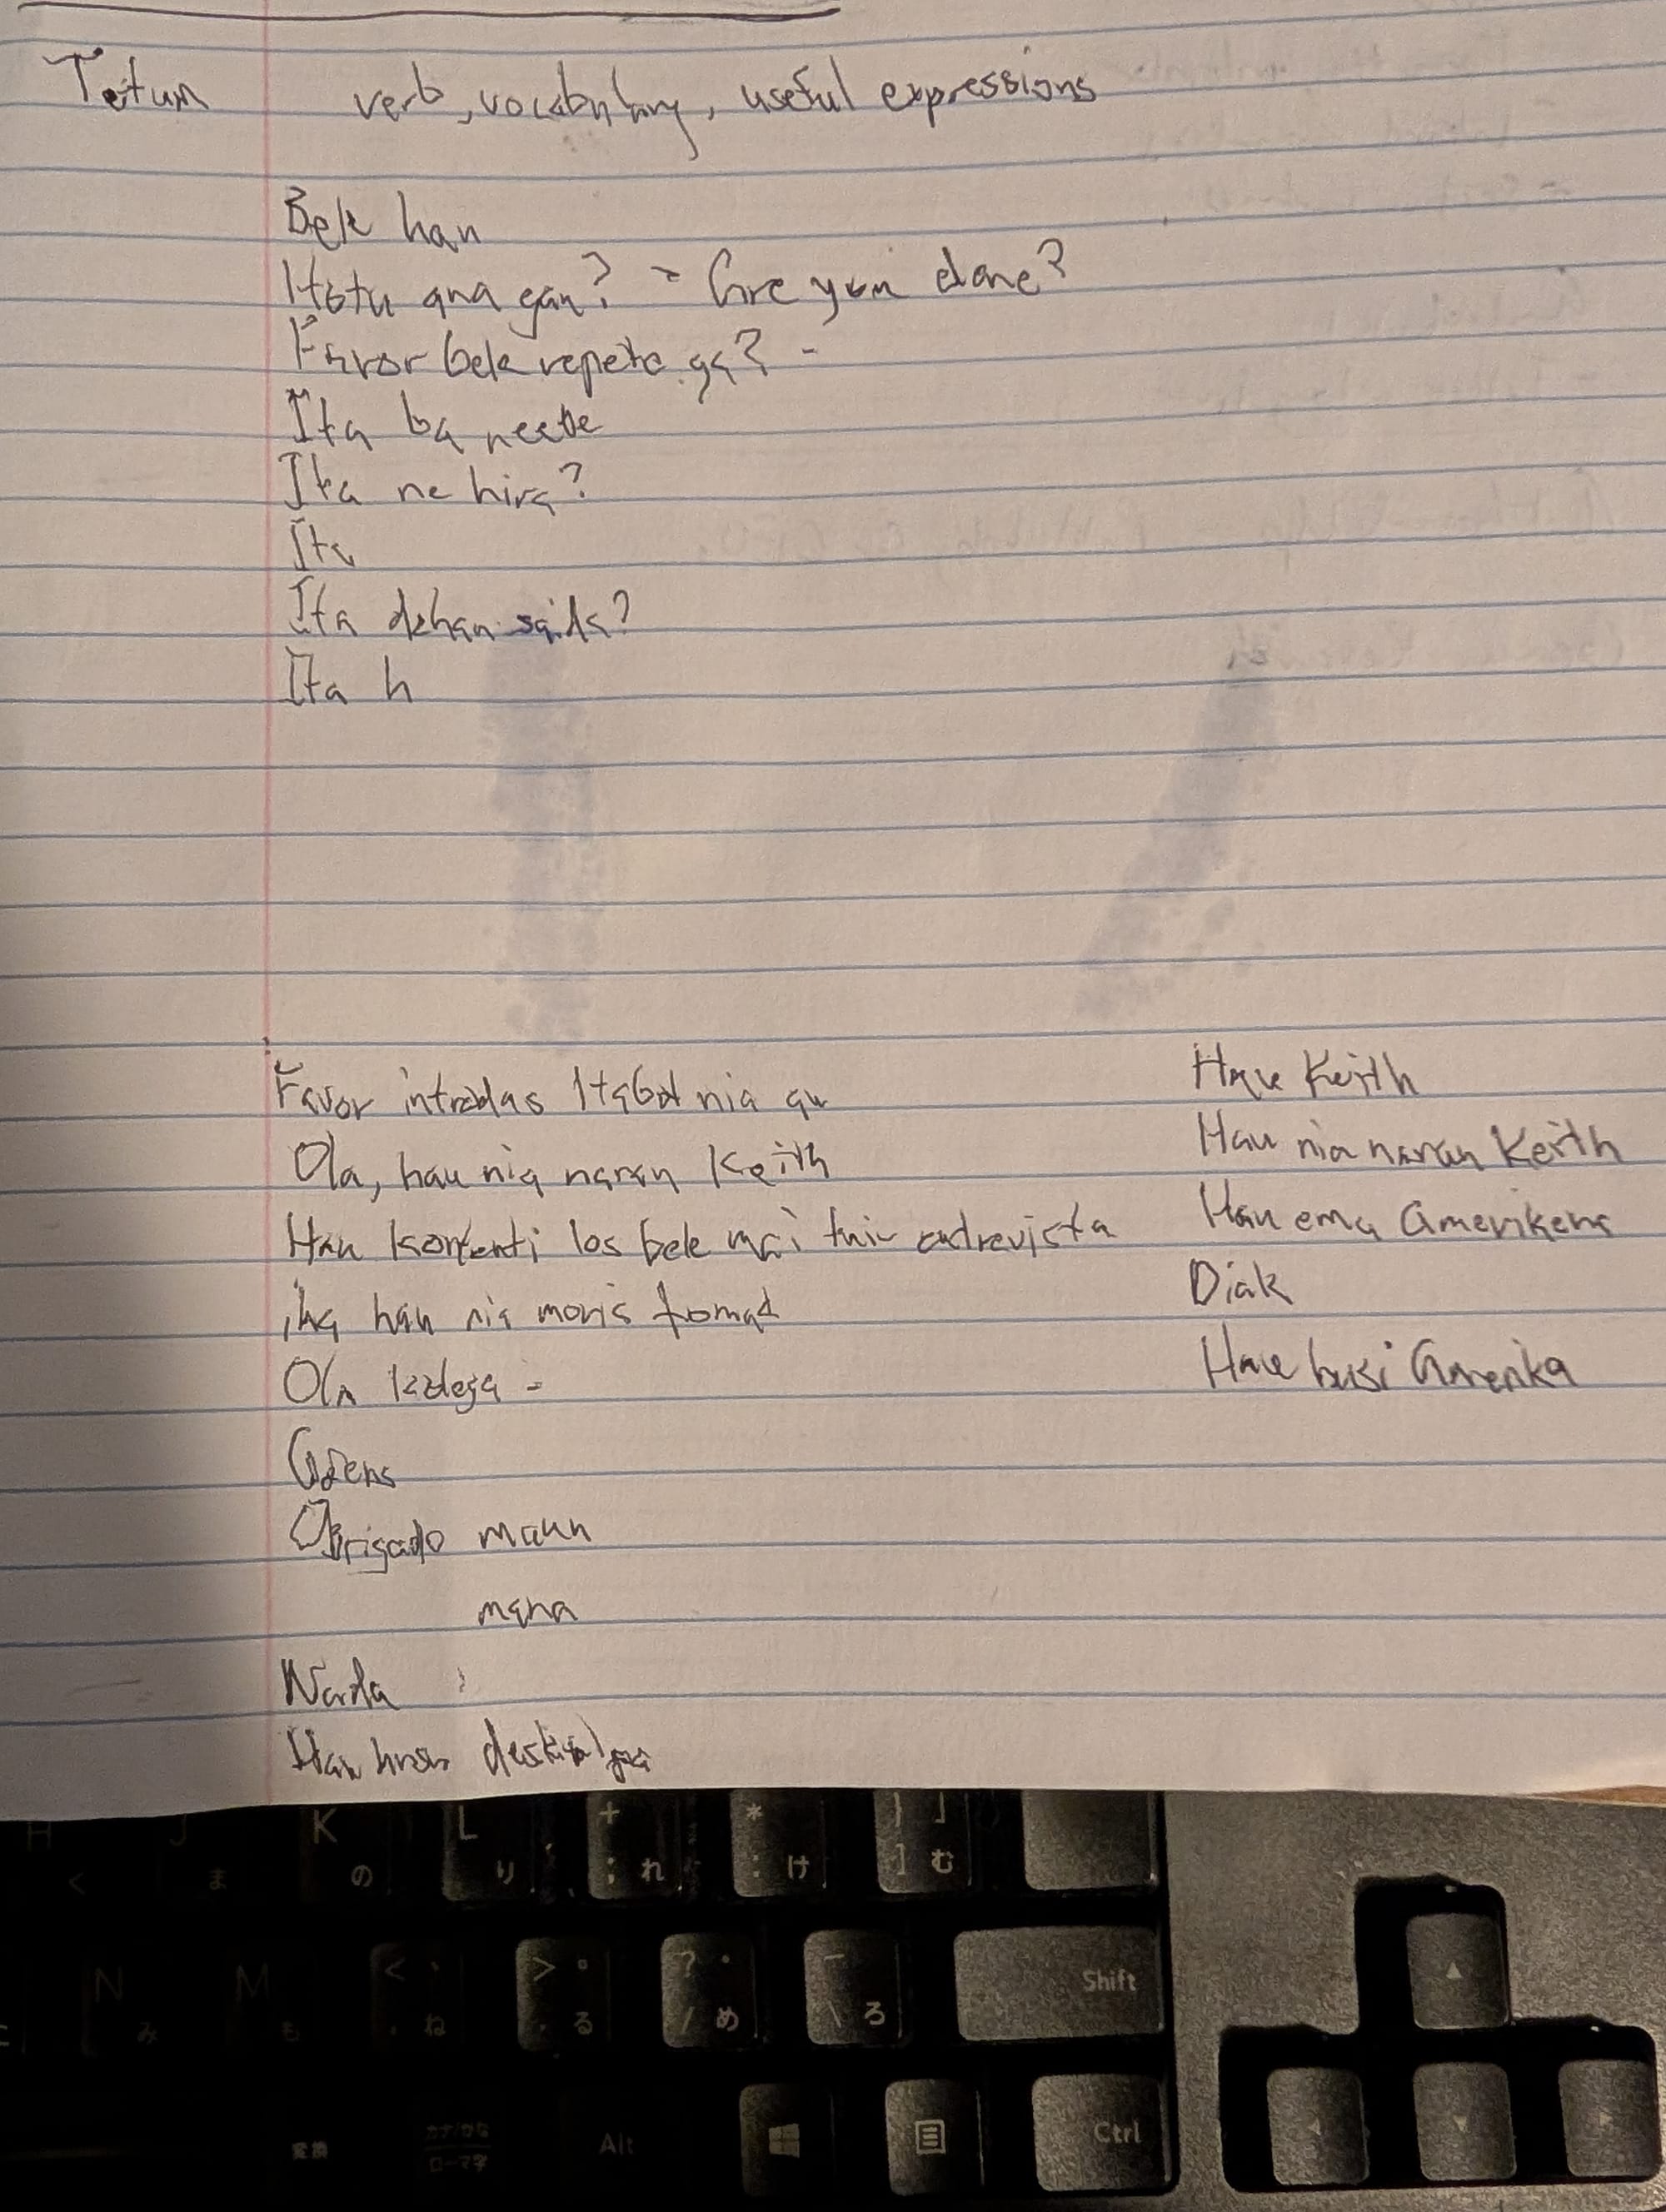 Tetum verb, vocabulary, useful expressions
Bele han
Hotu ana gan? = Are you done?
Favor bele repete ga? -
Ita ba neebe
Ita ne hira?
Ita
Ita dehan saida?
Ita h
Favor introdas Itabot nia an
Ola, hau nia naran Keith
Hau kontenti los bele mai tuir entrevista
iha hau nia moris tomak
Ola kolega -
Adeus
Obrigado maun
mana
Nada
Hau
Hau Keith
Hau nia naran Keith
Hau ema Amerikana
Diak
Hau husi Amerika
K
の
L
り
+
; れ
*
: け
}
]
] む
J
ま
H
<
N
み
M
も
<
, ね
>
. る
?
/ め
\ ろ
Shift
変換
カナ/かな
ローマ字
Alt
Ctrl